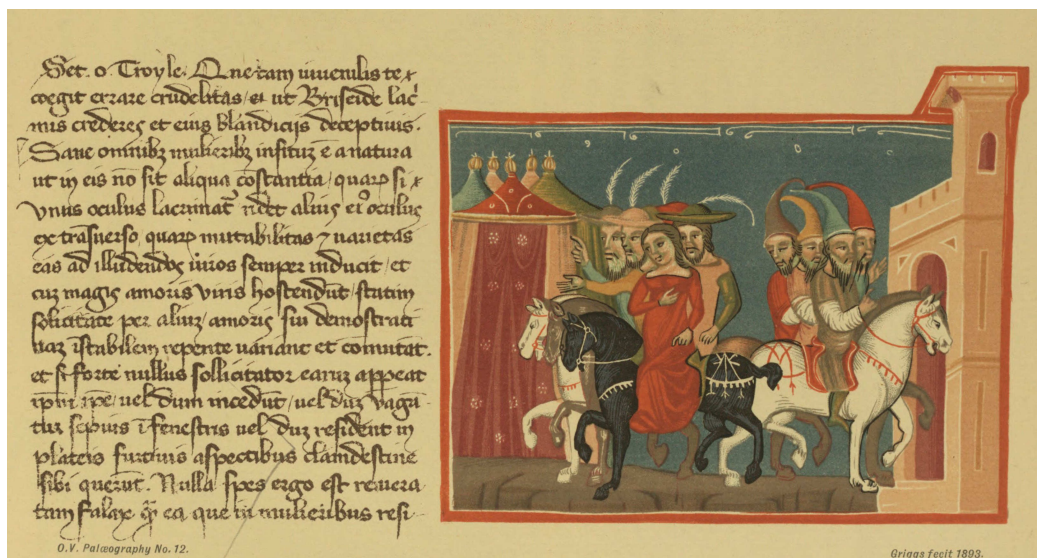 Set. o. Troyle. Que tam iuuenilis te
coegit errare crudelitas, et ut Briseide lac̄
mis crederes et eius blandicijs deceptiuis.
Sane omnibꝫ mulieribꝫ insitum ē a natura
ut in eis nō sit aliqua cōstantia, quarꝝ si
vnus oculus lacrimat̄ ridet alius ei oculus
ex trāsuerso, quarꝝ mutabilitas ⁊ uarietas
eas ad illudendos uiros semper inducit, et
cuꝫ magis amoris viris hostendūt, statim
solicitate per aliuꝫ, amoris sui demostrati
uaꝫ īstabilem repente uariant et comutāt.
et si forte nullus sollicitator earuꝫ appeat
ipm̄ ip̄e, uel dum incedūt, uel duꝫ vagū
tur sepius ī fenestris uel duꝫ resident in
plateis furtiuis aspectibus clandestine
sibi querūt. Nulla spes ergo est reuera
tam falax ꝙ̄ ea que in mulieribus resi-
O.V. Palæography No. 12.
Griggs fecit 1893.